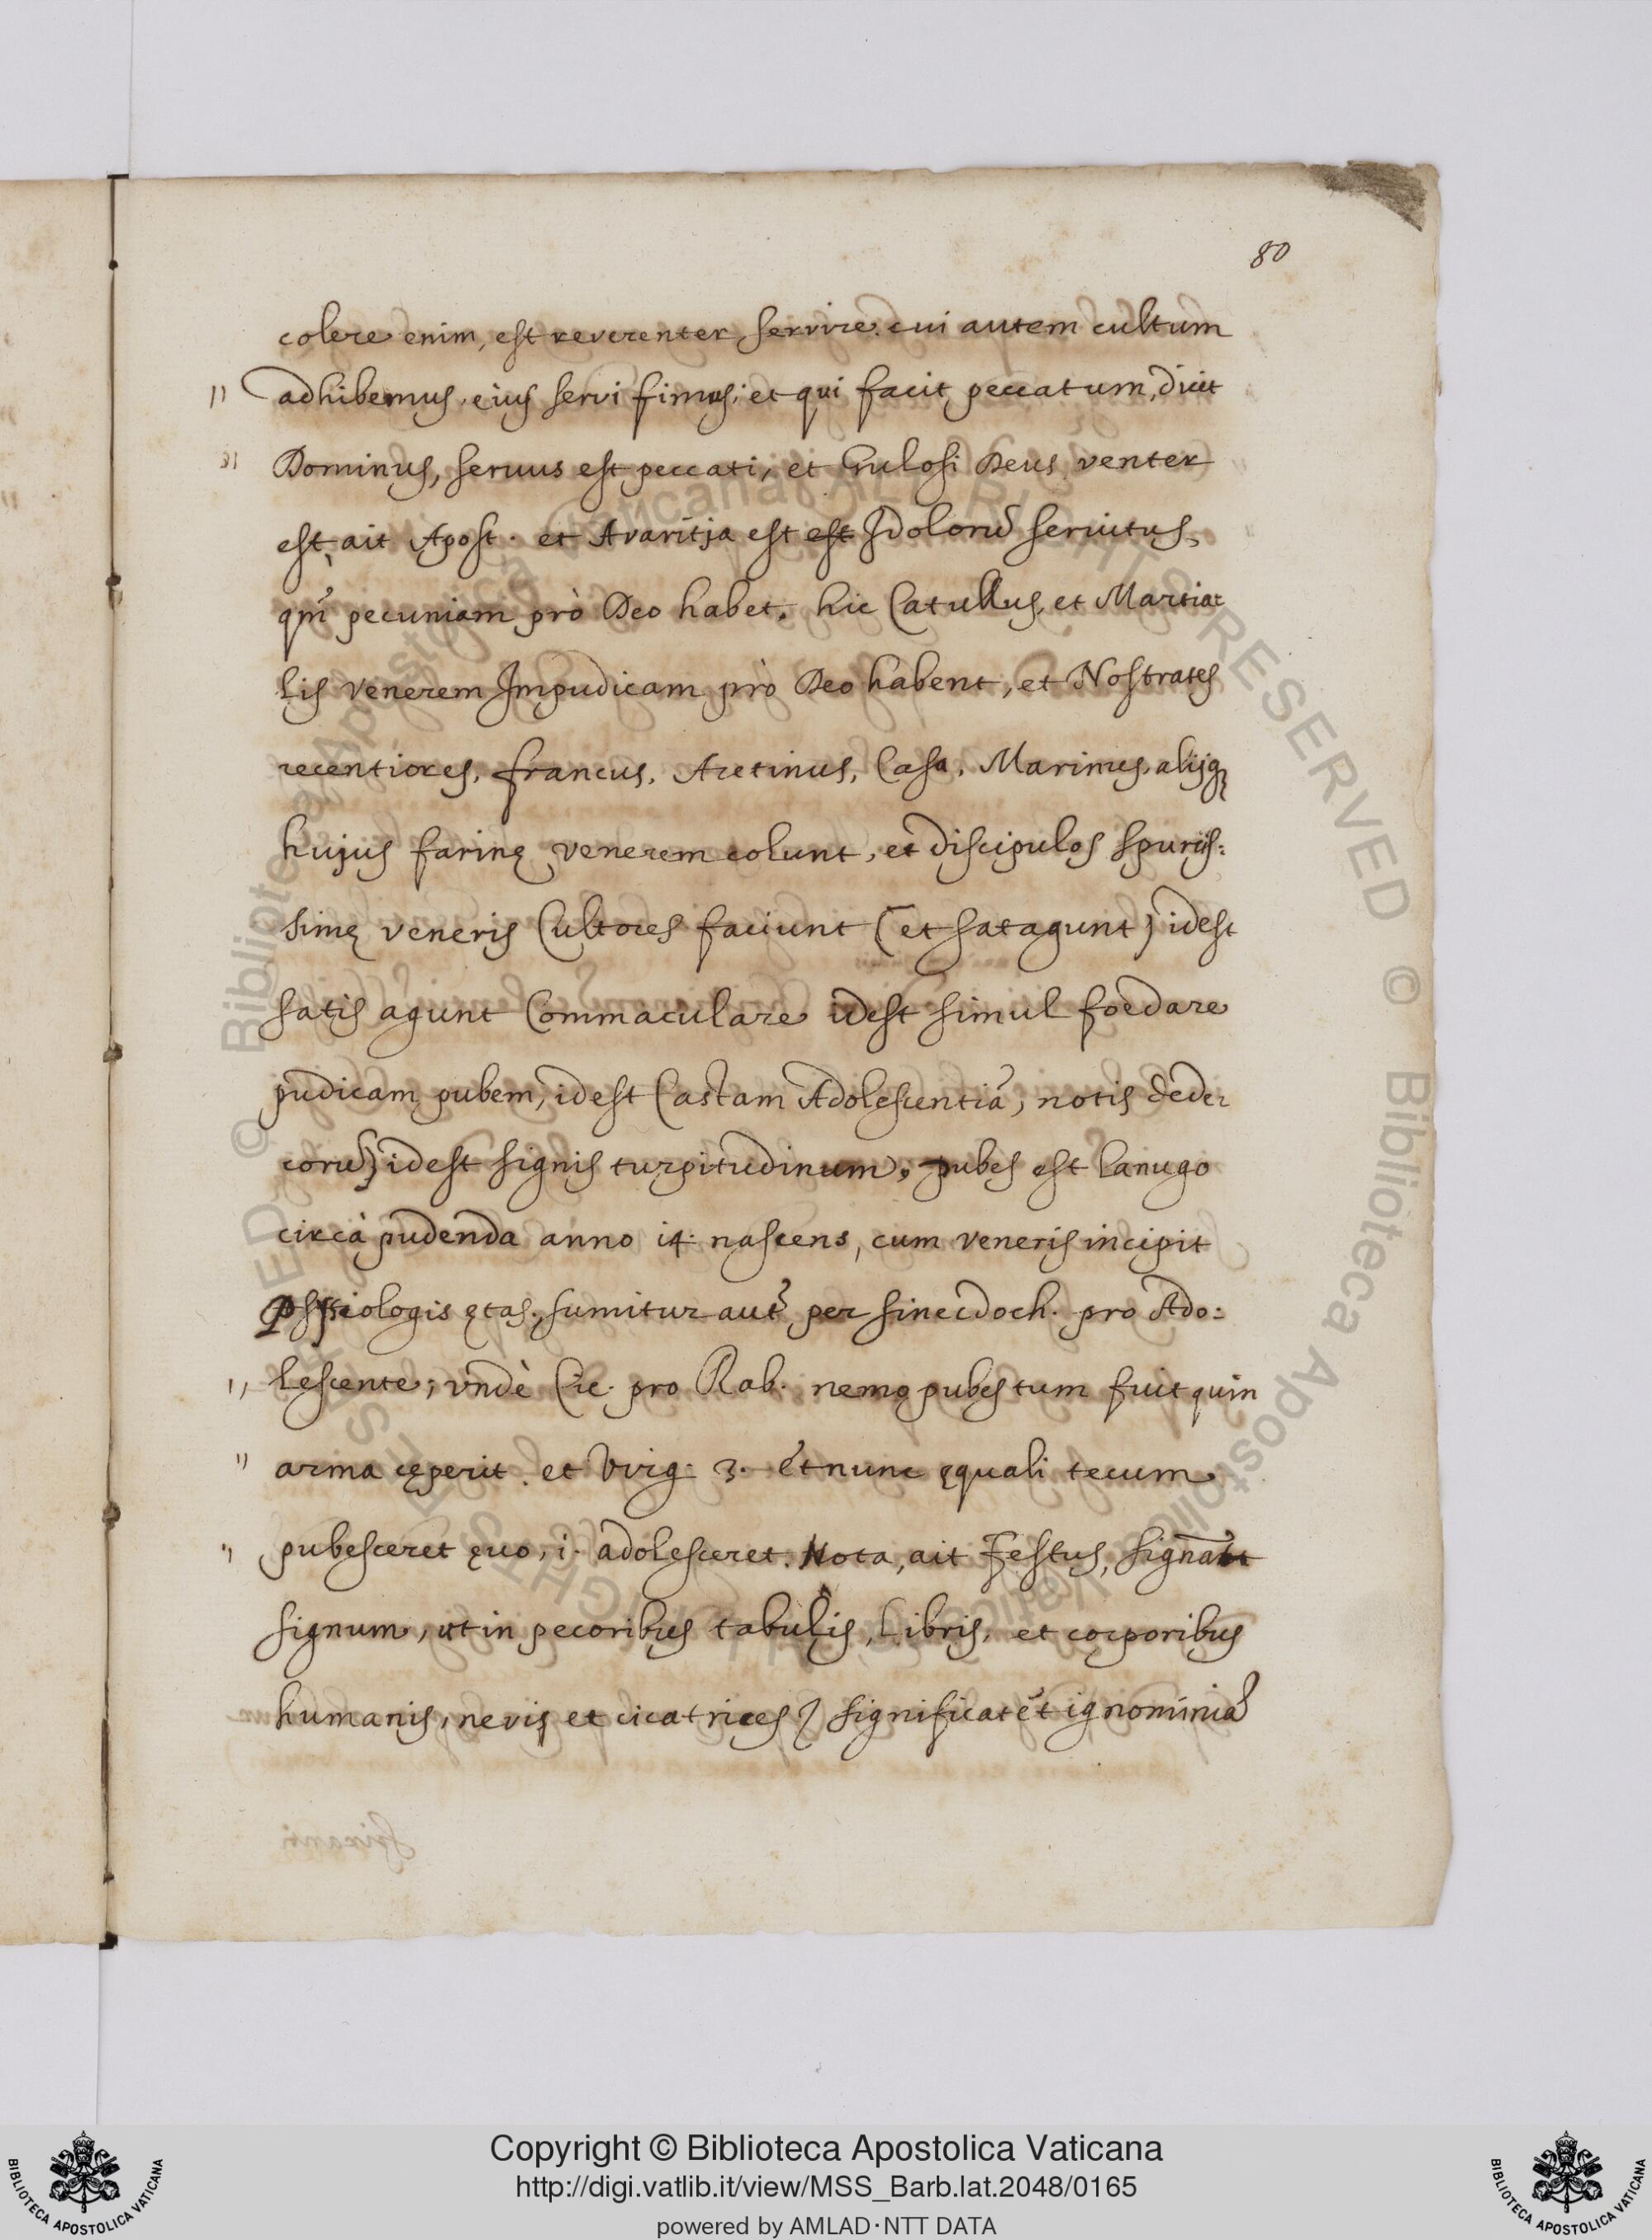 80
colere enim, est reverenter servire. cui autem cultum
" adhibemus, eius servi fimus; et qui facit peccatum, dicit
" Dominus, servus est peccati, et Gulosi Deus venter
est, ait Apost. et Avaritja est est Idolorũ seruitus,
qm̃ pecuniam prò Deo habet. hic Catullus, et Martia
lis venerem Impudicam prò Deo habent, et Nostrates
recentiores, francus, Aretinus, Casa, Marinus, alijq
hujus farinę venerem colunt, et discipulos spuris:
simę veneris Cultores faciunt (et satagunt) idest
satis agunt Commaculare idest simul foedare
pudicam pubem, idest Castam Adolescentiã, notis dede
corũ) idest signis turpitudinum, pubes est lanugo
circà pudenda anno 14. nascens, cum veneris incipit
ętas. sumitur aut̃ per sinecdoch. pro Ado:
" lescente; vndè Cic. pro Rab. nemo pubes tum fuit quin
" arma cęperit. et Virg. 3. et nunc ęquali tecum
" pubesceret ęuo, i. adolesceret. Nota, ait Festus,
signum, ut in pecoribus tabulis, libris, et corporibus
humanis, nevis et cicatrices) significat ẽt ignominiã
© Biblioteca Apostolica Vaticana ALL RIGHTS RESERVED © Biblioteca Apostolica Vaticana ALL RIGHTS RESERVED
Copyright © Biblioteca Apostolica Vaticana
http://digi.vatlib.it/view/MSS_Barb.lat.2048/0165
powered by AMLAD·NTT DATA
BIBLIOTECA APOSTOLICA VATICANA
BIBLIOTECA APOSTOLICA VATICANA